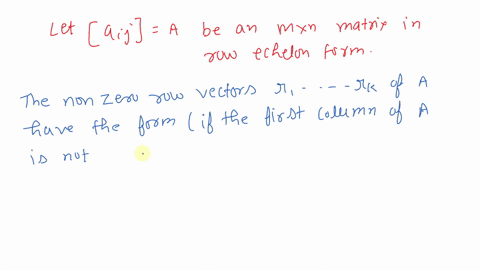 Let [aij] = A be an mxn matrix in
row echelon form.
The non zero row vectors r1 ----- rk of A
have the form (if the first column of A
is not